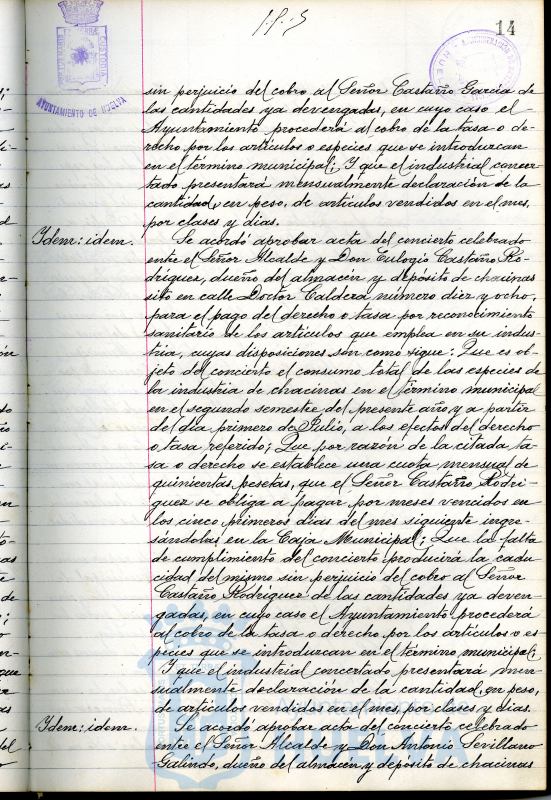 14
AYUNTAMIENTO DE HUELVA
sin perjuicio del cobro al Señor Castaño García de
las cantidades ya devengadas, en cuyo caso el
Ayuntamiento procederá al cobro de la tasa o de-
recho por los artículos o especies que se introduzcan
en el término municipal; Y que el industrial concer-
tado presentará mensualmente declaración de la
cantidad, en peso, de artículos vendidos en el mes,
por clases y días.
Idem: idem.
Se acordó aprobar acta del concierto celebrado
entre el Señor Alcalde y Don Eulogio Castaño Ro-
dríguez, dueño del almacén y depósito de chacinas
sito en calle Doctor Caldera número diez y ocho,
para el pago del derecho o tasa por reconocimiento
sanitario de los artículos que emplea en su indus-
tria, cuyas disposiciones son como sigue: Que es ob-
jeto del concierto el consumo total de las especies de
la industria de chacinas en el término municipal
en el segundo semestre del presente año, y a partir
del día primero de Julio, a los efectos del derecho
o tasa referido; Que por razón de la citada ta-
sa o derecho se establece una cuota mensual de
quinientas pesetas, que el Señor Castaño Rodrí-
guez se obliga a pagar por meses vencidos en
los cinco primeros días del mes siguiente ingre-
sándolas en la Caja Municipal; Que la falta
de cumplimiento del concierto producirá la cadu-
cidad del mismo sin perjuicio del cobro al Señor
Castaño Rodríguez de las cantidades ya deven-
gadas, en cuyo caso el Ayuntamiento procederá
al cobro de la tasa o derecho por los artículos o es-
pecies que se introduzcan en el término municipal;
Y que el industrial concertado presentará men-
sualmente declaración de la cantidad, en peso,
de artículos vendidos en el mes, por clases y días.
Idem: idem.
Se acordó aprobar acta del concierto celebrado
entre el Señor Alcalde y Don Antonio Sevillano
Galindo, dueño del almacén y depósito de chacinas